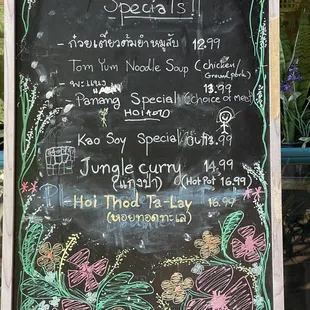 Specials!!
- ก๋วยเตี๋ยวต้มยำหมูสับ 12.99
Tom Yum Noodle Soup (chicken/
Ground pork)
พะแนง 13.99
Panang Special (choice of meat)
Kao Soy Special 13.99
Jungle curry 14.99
(แกงป่า) (Hot Pot 16.99)
- Hoi Thod Ta-Lay 16.99
(หอยทอดทะเล)